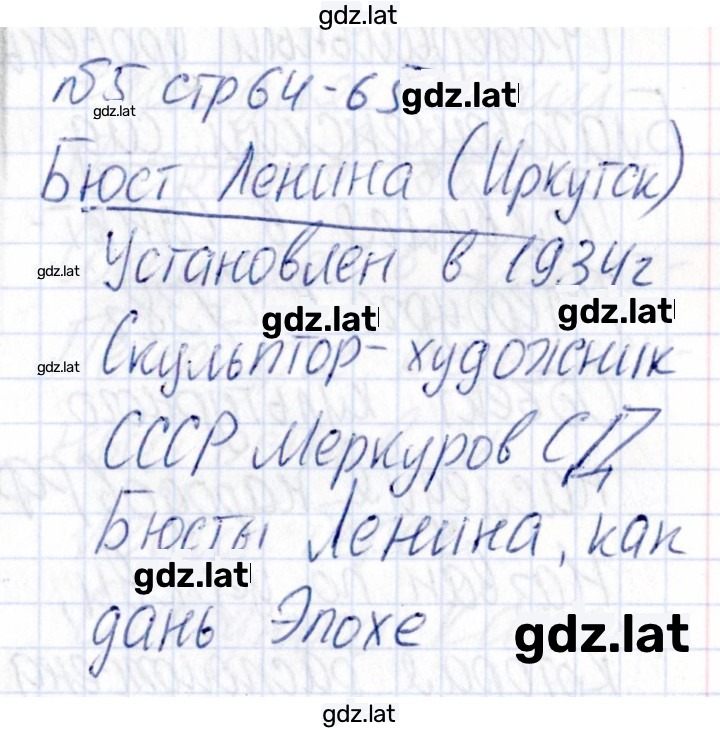 gdz.lat
№5 стр 64-65
gdz.lat
gdz.lat
Бюст Ленина (Иркутск)
Установлен в 1934г
gdz.lat
gdz.lat
gdz.lat
Скульптор-художник
gdz.lat
СССР Меркуров СД
Бюсты Ленина, как
gdz.lat
дань Эпохе
gdz.lat
gdz.lat